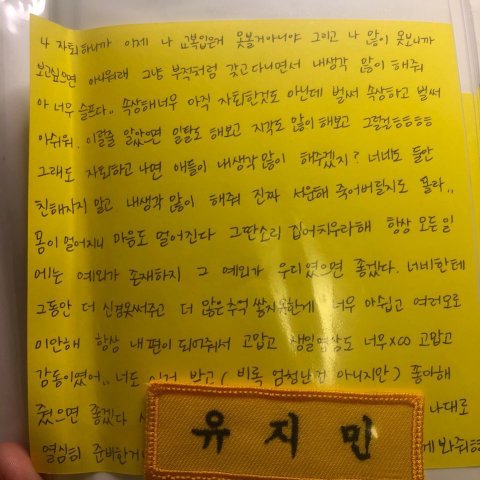 나 자퇴하니까 이제 나 교복입은거 못볼거아니야 그리고 나 많이 못보니까
보고싶으면 아니워래 그냥 부적처럼 갖고다니면서 내생각 많이 해줘
아 너무 슬프다. 속상해너무 아직 자퇴한것도 아닌데 벌써 속상하고 벌써
아쉬워. 이럴줄 알았으면 일탈도 해보고 지각도 많이 해보고 그럴걸ㅎㅎㅎㅎ
그래도 자퇴하고 나면 애들이 내생각 많이 해주겠지? 너네도 둘만
친해지지 말고 내생각 많이 해줘 진짜 서운해 죽어버릴지도 몰라..
몸이 멀어지니 마음도 멀어진다 그딴소리 집어치우라해 항상 모든일
에는 예외가 존재하지 그 예외가 우리였으면 좋겠다. 너네한테
그동안 더 신경못써주고 더 많은추억 쌓지못한게 너무 아쉽고 여러모로
미안해 항상 내편이 되어줘서 고맙고 생일영상도 너무xoo 고맙고
감동이였어.. 너도 이거 받고 (비록 엄청난건 아니지만) 좋아해
줬으면 좋겠다 나대로
열심히 준비한거 게 봐줘ㅎㅎ
유지민